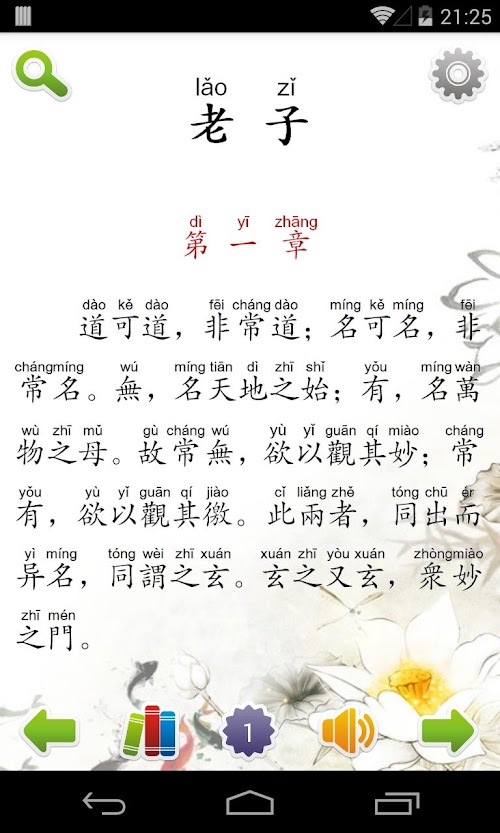 21:25
lǎo zǐ
老子
dì yī zhāng
第一章
dào kě dào fēi cháng dào míng kě míng fēi
道可道，非常道；名可名，非
cháng míng wú míng tiān dì zhī shǐ yǒu míng wàn
常名。無，名天地之始；有，名萬
wù zhī mǔ gù cháng wú yù yǐ guān qí miào cháng
物之母。故常無，欲以觀其妙；常
yǒu yù yǐ guān qí jiào cǐ liǎng zhě tóng chū ér
有，欲以觀其徼。此兩者，同出而
yì míng tóng wèi zhī xuán xuán zhī yòu xuán zhòng miào
异名，同謂之玄。玄之又玄，衆妙
zhī mén
之門。
1